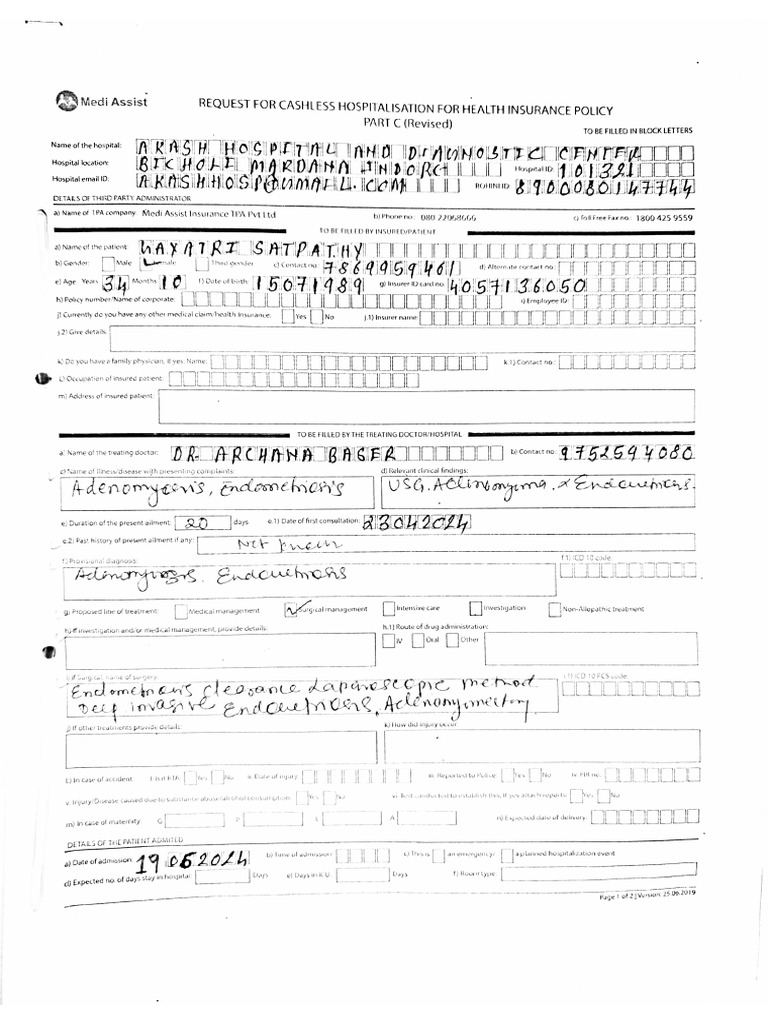 Medi Assist
REQUEST FOR CASHLESS HOSPITALISATION FOR HEALTH INSURANCE POLICY
PART C (Revised)
TO BE FILLED IN BLOCK LETTERS
Name of the hospital: AKASH HOSPITAL AND DIAGNOSTIC CENTER
Hospital location: BICHOLI MARDANA INDORE Hospital ID: 101321
Hospital email ID: AKASHHOSP@GMAIL.COM ROHINI ID: 8900080147744
DETAILS OF THIRD PARTY ADMINISTRATOR
a) Name of TPA company: Medi Assist Insurance TPA Pvt Ltd b) Phone no.: 080 22068666 c) Toll Free Fax no.: 1800 425 9559
TO BE FILLED BY INSURED/PATIENT
a) Name of the patient: GAYATRI SATPATHY
b) Gender: Male Female Third gender c) Contact no.: 7869959461 d) Alternate contact no.:
e) Age: Years 34 Months 10 f) Date of birth: 15071989 g) Insurer ID card no.: 4057136050
h) Policy number/Name of corporate: i) Employee ID:
j) Currently do you have any other medical claim/health insurance: Yes No j.1) Insurer name:
j.2) Give details:
k) Do you have a family physician, if yes: Name: k.1) Contact no.:
L) Occupation of insured patient:
m) Address of insured patient:
TO BE FILLED BY THE TREATING DOCTOR/HOSPITAL
a) Name of the treating doctor: DR. ARCHANA BASER b) Contact no.: 9752594080
c) Name of illness/disease with presenting complaints: d) Relevant clinical findings:
Adenomyosis, Endometriosis USG. Adenomyoma & Endometriosis.
e) Duration of the present ailment: 20 days e.1) Date of first consultation: 23042024
e.2) Past history of present ailment if any: Not
f) Provisional diagnosis: f.1) ICD 10 code:
Adenomyosis. Endometriosis
g) Proposed line of treatment: Medical management Surgical management Intensive care Investigation Non-Allopathic treatment
h) If investigation and/or medical management, provide details: h.1) Route of drug administration:
IV Oral Other
i) If Surgical, name of surgery: i.1) ICD 10 PCS code:
Endometriosis clearance Laparoscopic method
Deep invasive Endometriosis, Adenomyomectomy.
j) If other treatments provide details: k) How did injury occur:
L) In case of accident: i. Is it RTA: Yes No ii. Date of injury: iii. Reported to Police: Yes No iv. FIR no.:
v. Injury/Disease caused due to substance abuse/alcohol consumption: Yes No vi. Test conducted to establish this, if yes attach reports: Yes No
m) In case of maternity: G P L A n) Expected date of delivery:
DETAILS OF THE PATIENT ADMITED
a) Date of admission: 19062024 b) Time of admission: c) This is an emergency: a planned hospitalization event
d) Expected no. of days stay in hospital: Days e) Days in ICU: Days f) Room type:
Page 1 of 2 | Version: 25.06.2019